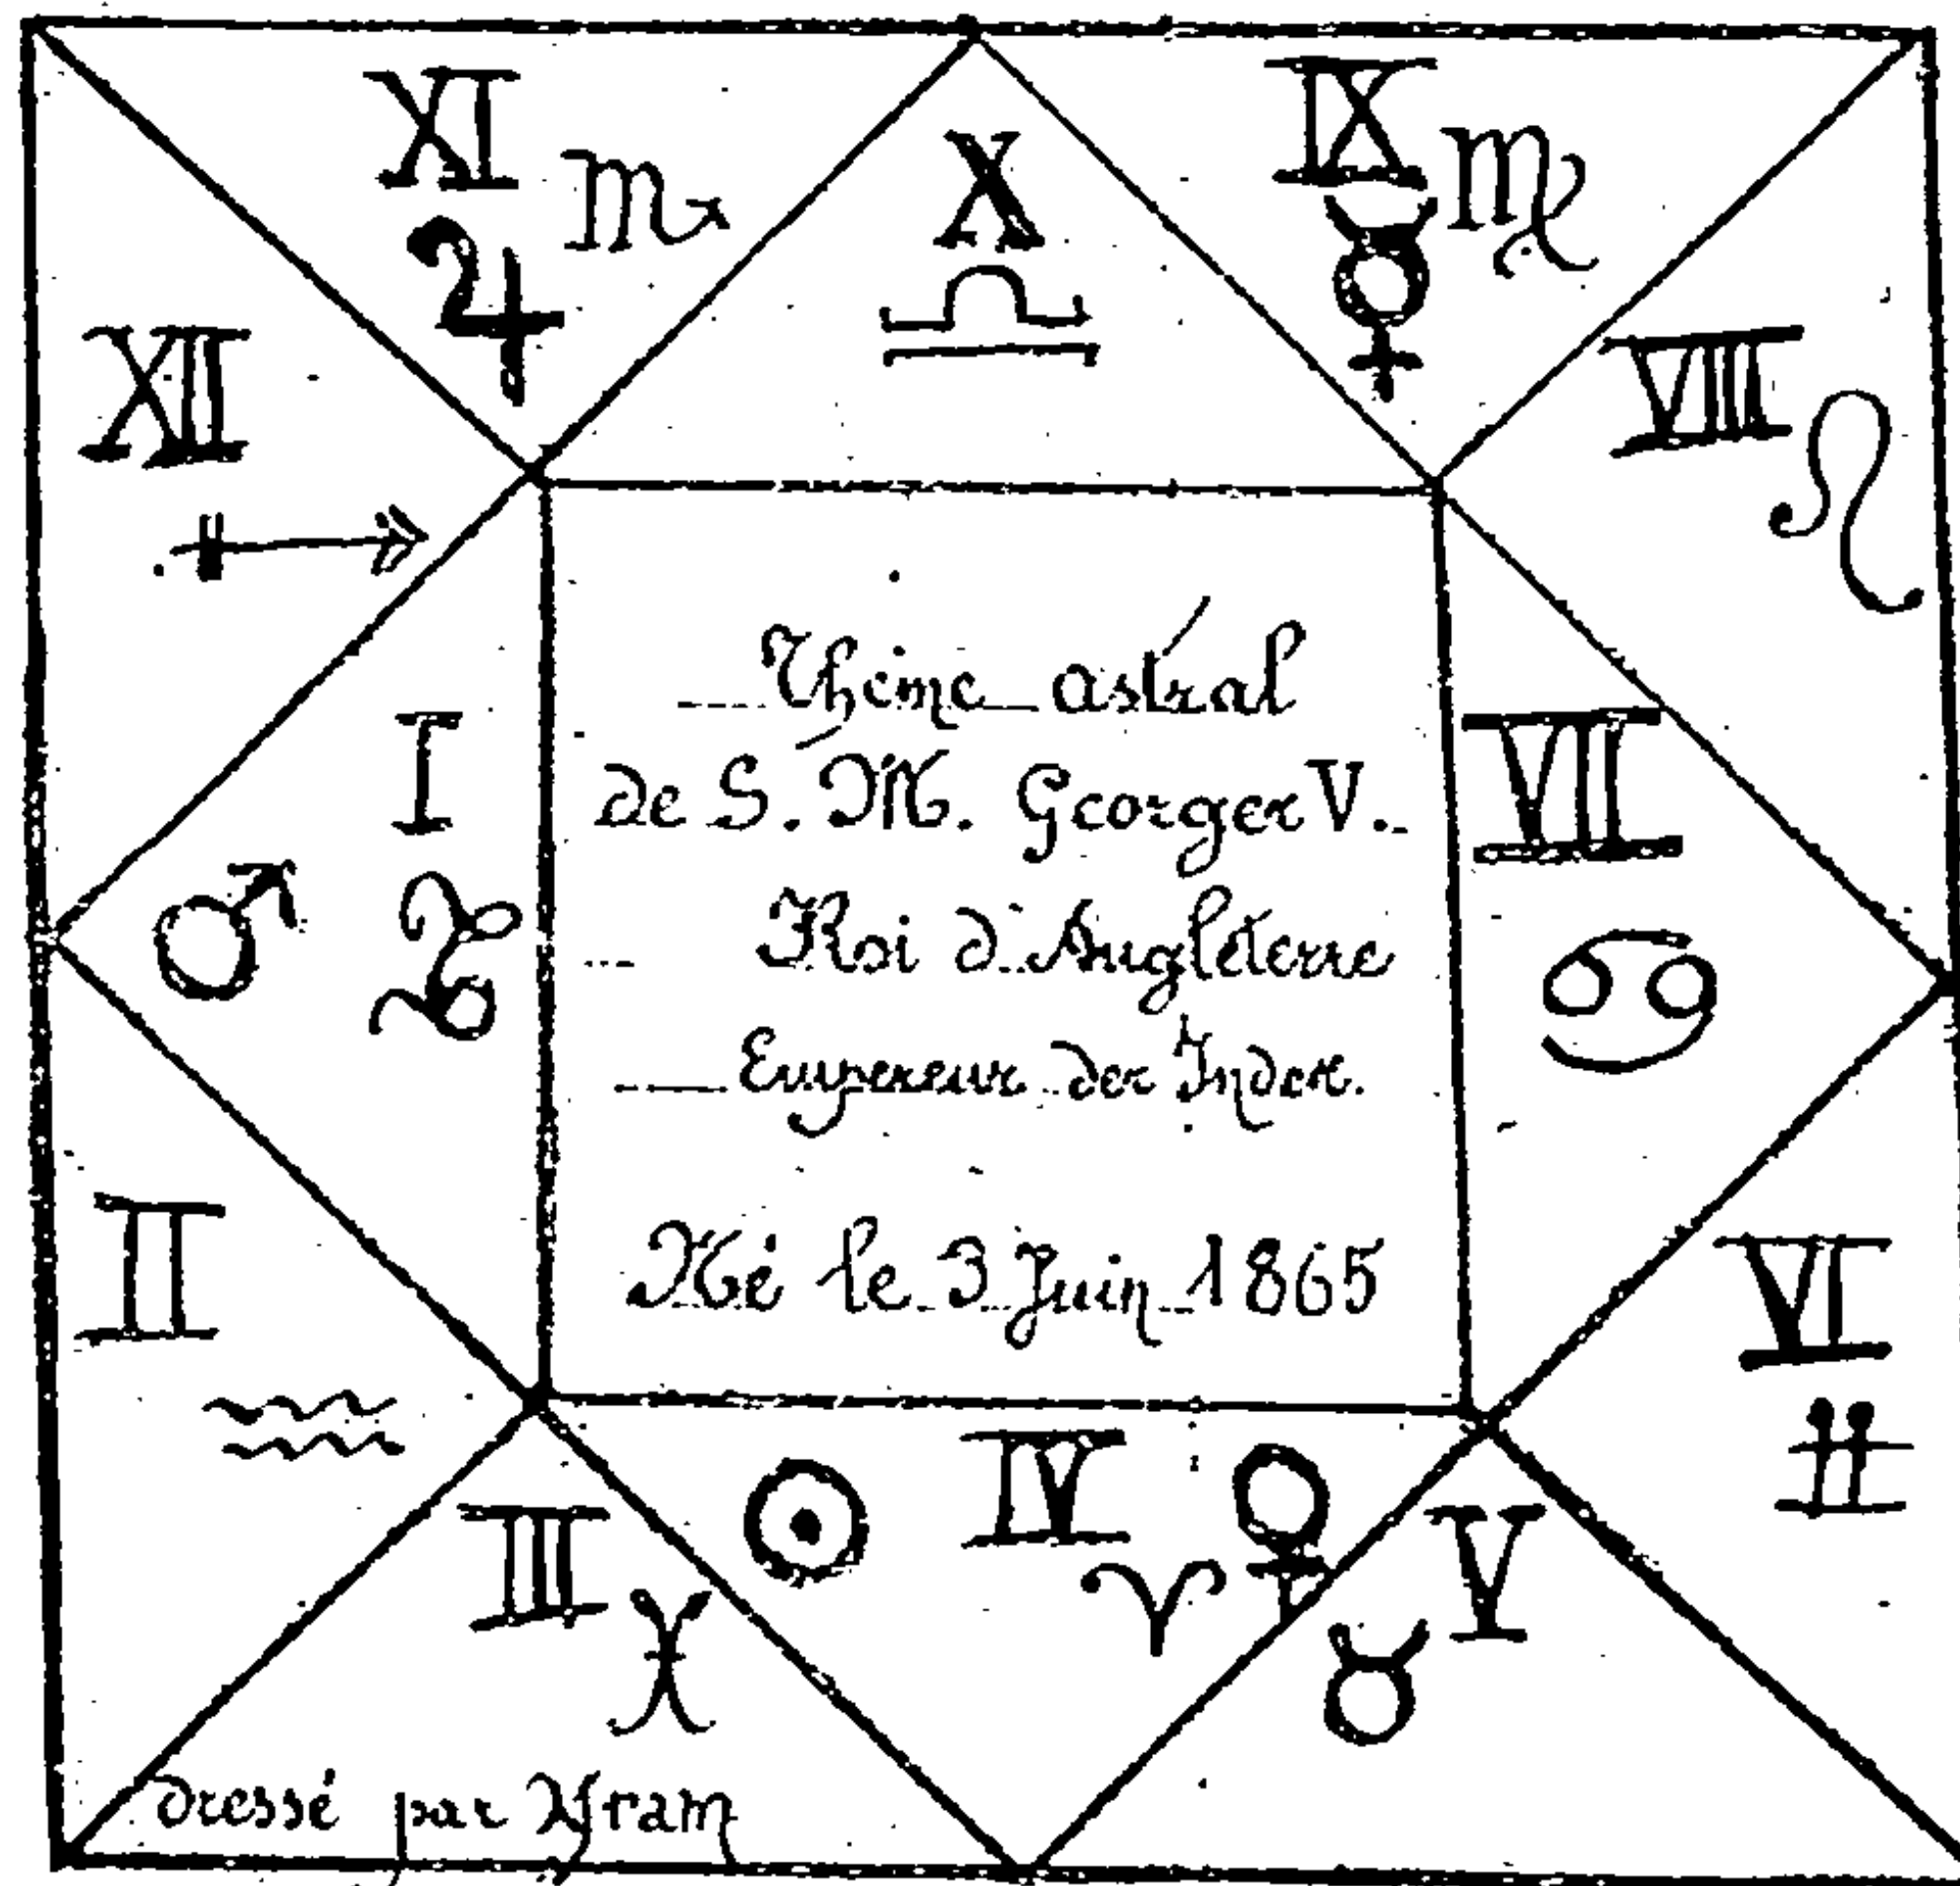 XI
X
IX
XII
VIIII
Thème astral
de S. M. Georges V.
Roi d'Angleterre
Empereur des Indes.
Né le 3 Juin 1865
I
VII
II
VI
III
IV
V
dressé par